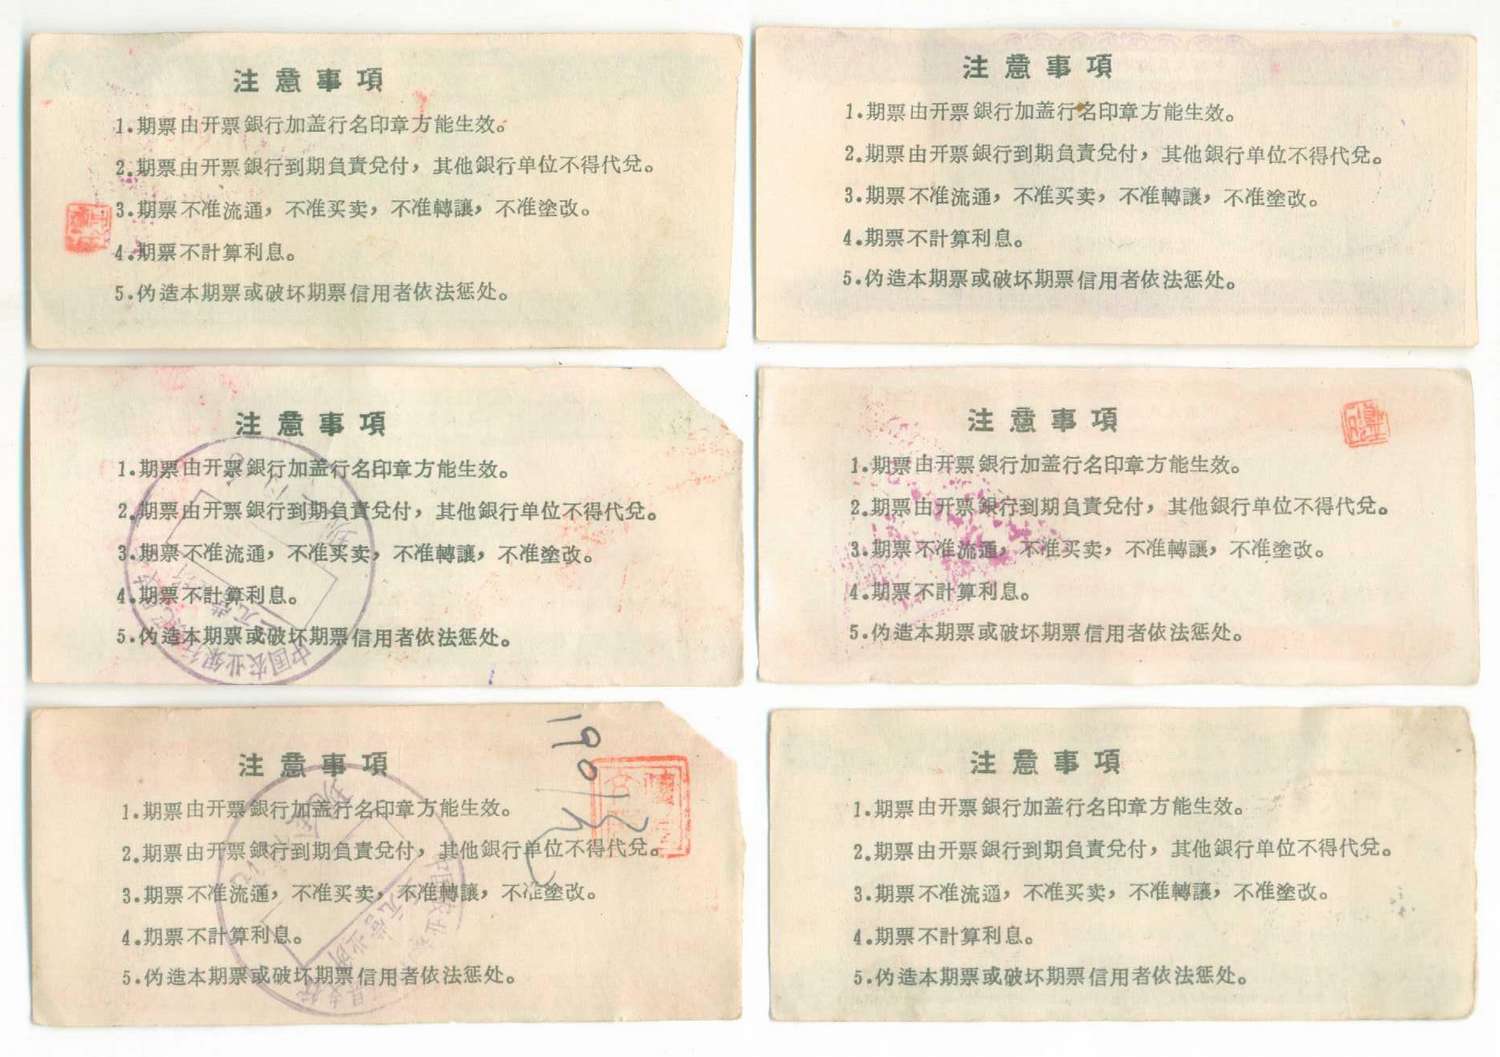 注意事項
1.期票由开票銀行加盖行名印章方能生效。
2.期票由开票銀行到期負責兌付，其他銀行单位不得代兌。
3.期票不准流通，不准买卖，不准轉讓，不准塗改。
4.期票不計算利息。
5.伪造本期票或破坏期票信用者依法惩处。
注意事項
1.期票由开票銀行加盖行名印章方能生效。
2.期票由开票銀行到期負責兌付，其他銀行单位不得代兌。
3.期票不准流通，不准买卖，不准轉讓，不准塗改。
4.期票不計算利息。
5.伪造本期票或破坏期票信用者依法惩处。
注意事項
1.期票由开票銀行加盖行名印章方能生效。
2.期票由开票銀行到期負責兌付，其他銀行单位不得代兌。
3.期票不准流通，不准买卖，不准轉讓，不准塗改。
4.期票不計算利息。
5.伪造本期票或破坏期票信用者依法惩处。
中国农业银行
注意事項
1.期票由开票銀行加盖行名印章方能生效。
2.期票由开票銀行到期負責兌付，其他銀行单位不得代兌。
3.期票不准流通，不准买卖，不准轉讓，不准塗改。
4.期票不計算利息。
5.伪造本期票或破坏期票信用者依法惩处。
注意事項
1.期票由开票銀行加盖行名印章方能生效。
2.期票由开票銀行到期負責兌付，其他銀行单位不得代兌。
3.期票不准流通，不准买卖，不准轉讓，不准塗改。
4.期票不計算利息。
5.伪造本期票或破坏期票信用者依法惩处。
元营业所
注意事項
1.期票由开票銀行加盖行名印章方能生效。
2.期票由开票銀行到期負責兌付，其他銀行单位不得代兌。
3.期票不准流通，不准买卖，不准轉讓，不准塗改。
4.期票不計算利息。
5.伪造本期票或破坏期票信用者依法惩处。